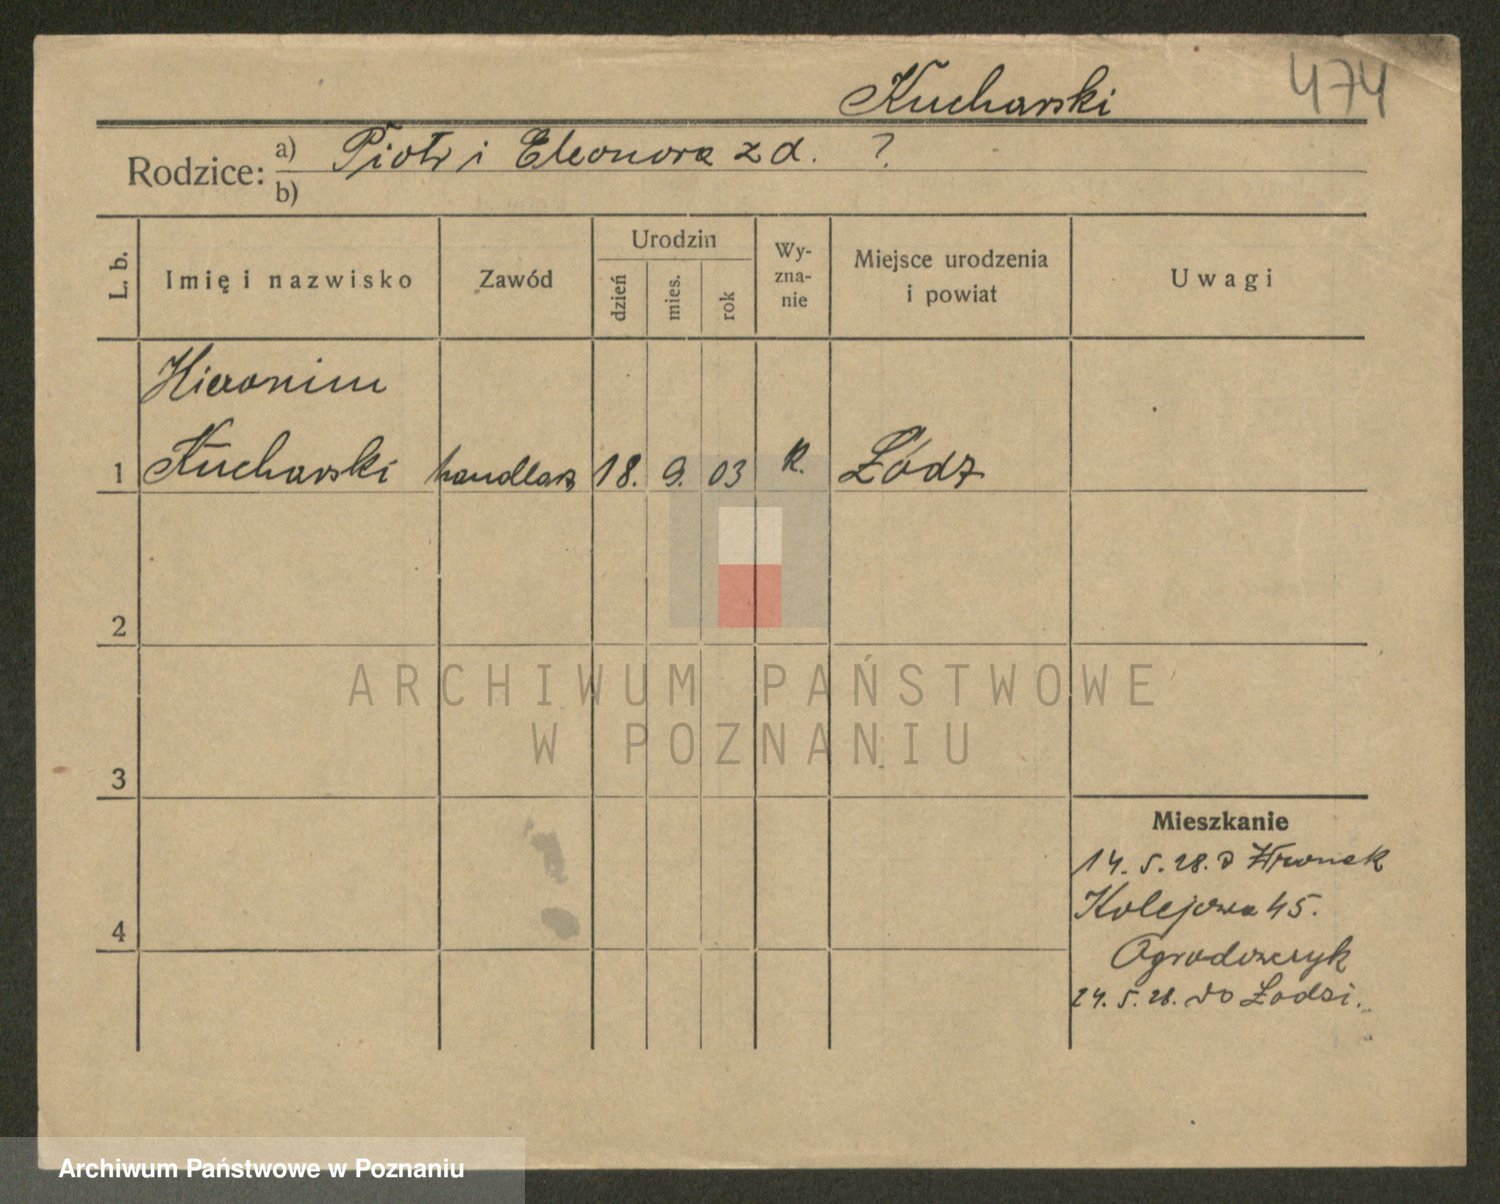 Kucharski
474
Rodzice: a) Piotr i Eleonora z d. ?
b)
L. b.
Imię i nazwisko
Zawód
Urodzin
dzień
mies.
rok
Wy-
zna-
nie
Miejsce urodzenia
i powiat
Uwagi
Hieronim
1 Kucharski handlarz 18. 9. 03 R. Łódz
2
3
4
Mieszkanie
14. 5. 28.
Kolejowa 45.
Ogrodowczyk
24. 5. 28. do Łodzi.
ARCHIWUM PAŃSTWOWE
W POZNANIU
Archiwum Państwowe w Poznaniu